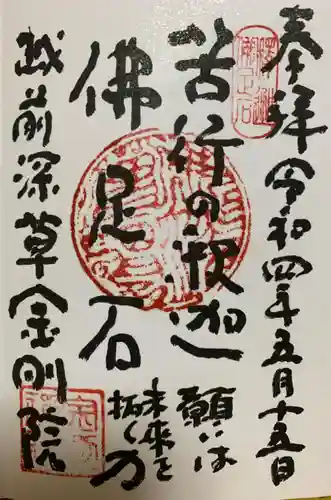 奉拝 令和四年五月十五日
苦行の釈迦
願いは
佛足石
未来を
拓く力
越前深草金剛院